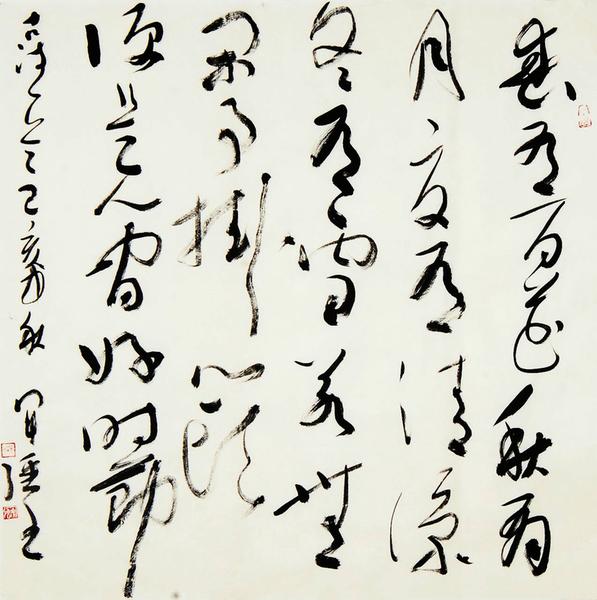 春有百花秋有
月夏有清凉
冬有雪若無
闲事掛心头
便是人间好时節
古诗一首己亥秋